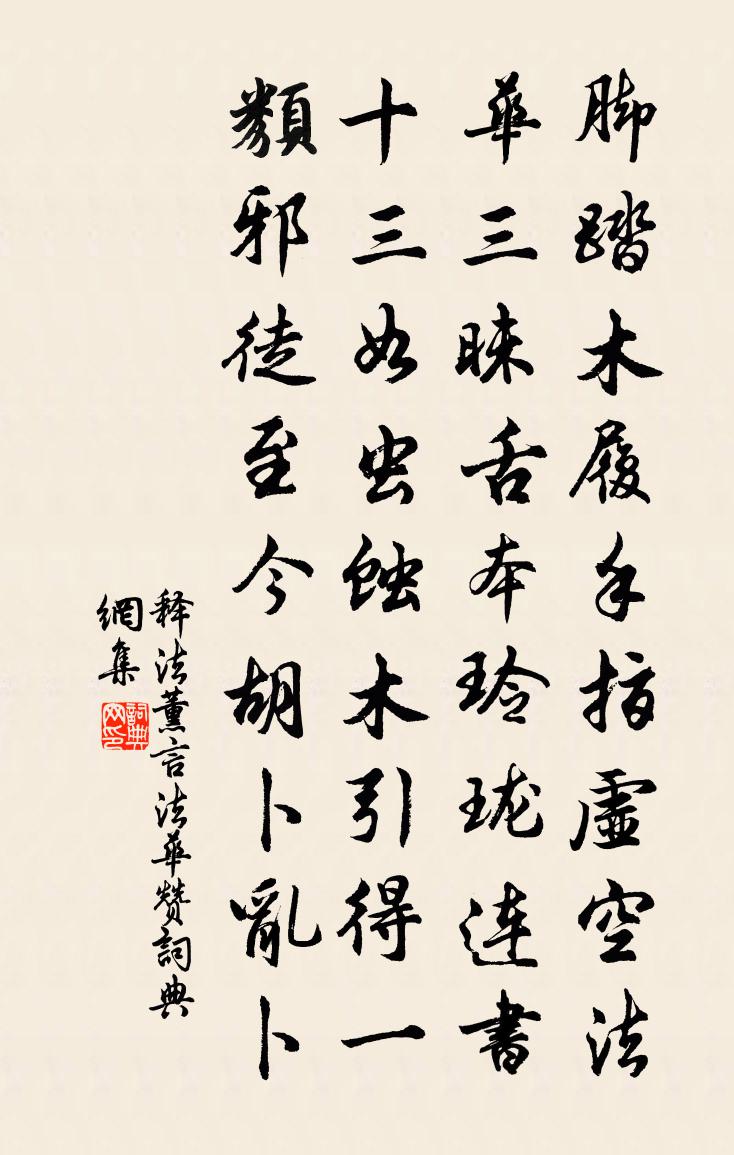 脚踏木履手指虛空法
華三昧舌本玲珑連書
十三如虫蝕木引得一
類邪徒至今胡卜亂卜
释法薰言法華赞詞典
網集
詞典网印